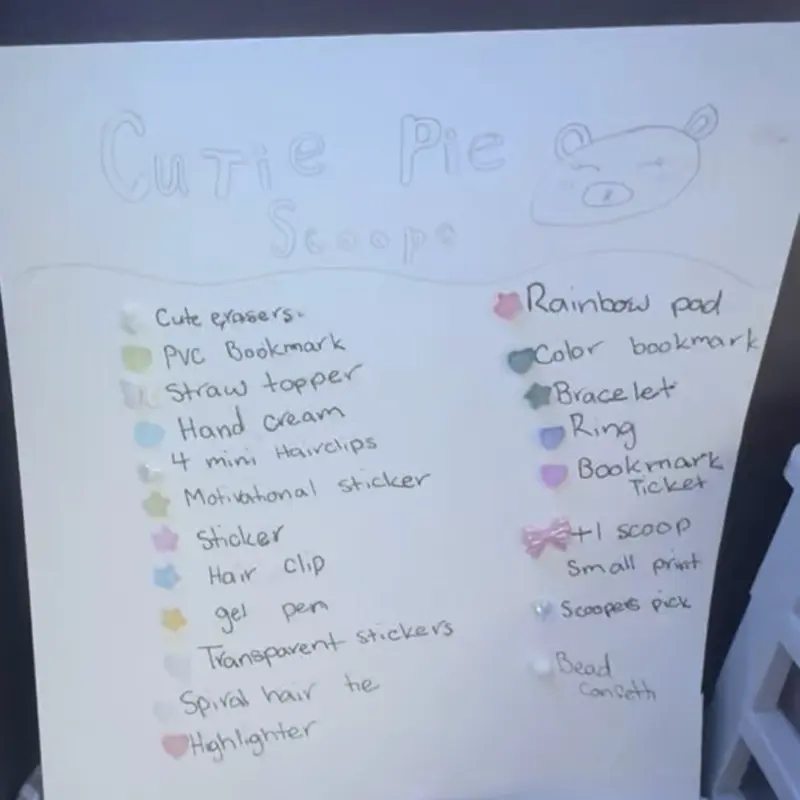 Cutie Pie
Scoops
Cute erasers.
PVC Bookmark
Straw topper
Hand cream
4 mini Hairclips
Motivational sticker
Sticker
Hair clip
gel pen
Transparent stickers
Spiral hair tie
Highlighter
Rainbow pad
Color bookmark
Bracelet
Ring
Bookmark
Ticket
+1 scoop
Small print
Scoopers pick
Bead
Confetti